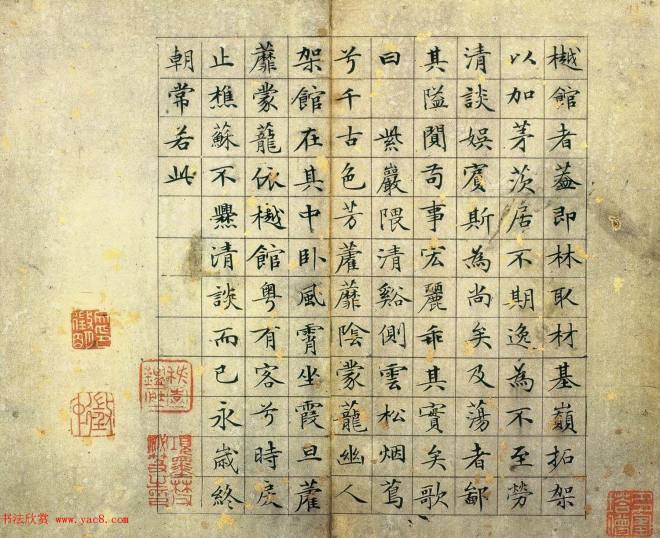 樾館者葢即林取材基巔拓架
以加茅茨居不期逸為不至勞
清談娛賓斯為尚矣及蕩者鄙
其隘閴苟事宏麗乖其實矣歌
曰 紫巖隈清谿側雲松烟蔦
兮千古色芳藿蘼陰蒙蘢幽人
架館在其中卧風霄坐霞旦藿
蘼蒙蘢依樾館粵有客兮時戾
止樵蘇不爨清談而已永歲終
朝常若此
項墨林父
秘笈之印
书法欣赏 www.yac8.com